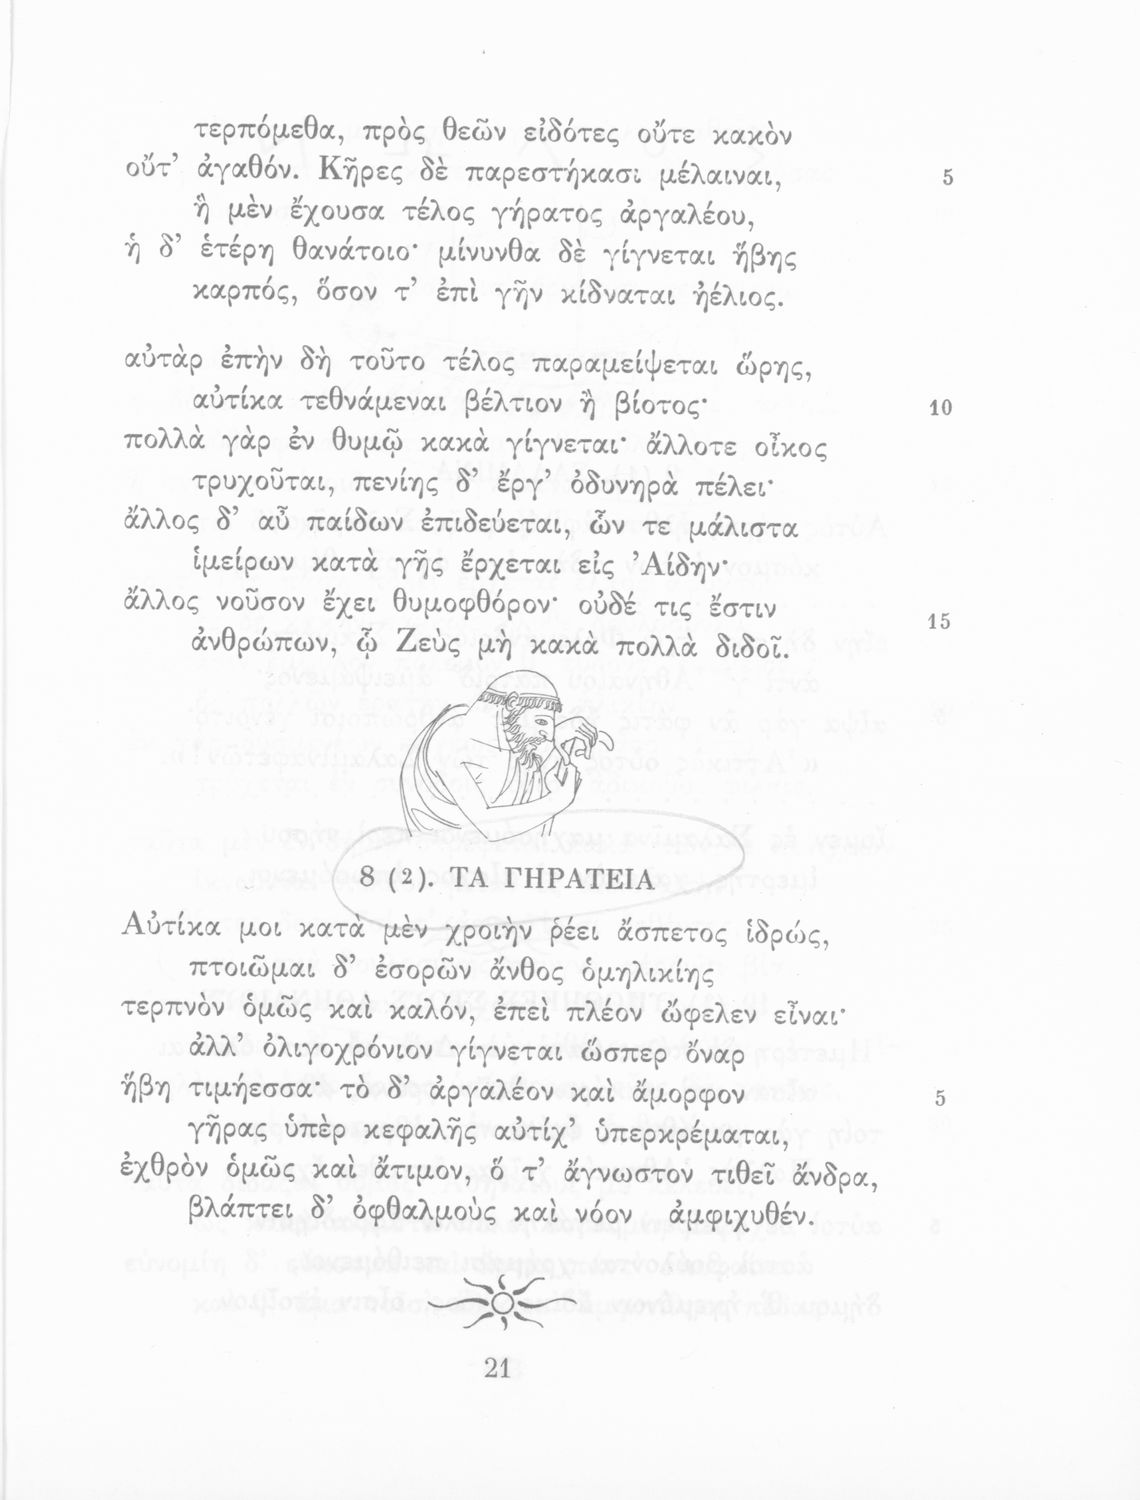 τερπόμεθα, πρὸς θεῶν εἰδότες οὔτε κακὸν
οὔτ’ ἀγαθόν. Κῆρες δὲ παρεστήκασι μέλαιναι, 5
ἣ μὲν ἔχουσα τέλος γήρατος ἀργαλέου,
ἡ δ’ ἑτέρη θανάτοιο· μίνυνθα δὲ γίγνεται ἥβης
καρπός, ὅσον τ’ ἐπὶ γῆν κίδναται ἠέλιος.
αὐτὰρ ἐπὴν δὴ τοῦτο τέλος παραμείψεται ὥρης,
αὐτίκα τεθνάμεναι βέλτιον ἢ βίοτος· 10
πολλὰ γὰρ ἐν θυμῷ κακὰ γίγνεται· ἄλλοτε οἶκος
τρυχοῦται, πενίης δ’ ἔργ’ ὀδυνηρὰ πέλει·
ἄλλος δ’ αὖ παίδων ἐπιδεύεται, ὧν τε μάλιστα
ἱμείρων κατὰ γῆς ἔρχεται εἰς ’Αίδην·
ἄλλος νοῦσον ἔχει θυμοφθόρον· οὐδέ τις ἔστιν 15
ἀνθρώπων, ᾧ Ζεὺς μὴ κακὰ πολλὰ διδοῖ.
8 (2). ΤΑ ΓΗΡΑΤΕΙΑ
Αὐτίκα μοι κατὰ μὲν χροιὴν ῥέει ἄσπετος ἱδρώς,
πτοιῶμαι δ’ ἐσορῶν ἄνθος ὁμηλικίης
τερπνὸν ὁμῶς καὶ καλόν, ἐπεὶ πλέον ὤφελεν εἶναι·
ἀλλ’ ὀλιγοχρόνιον γίγνεται ὥσπερ ὄναρ
ἥβη τιμήεσσα· τὸ δ’ ἀργαλέον καὶ ἄμορφον 5
γῆρας ὑπὲρ κεφαλῆς αὐτίχ’ ὑπερκρέμαται,
ἐχθρὸν ὁμῶς καὶ ἄτιμον, ὅ τ’ ἄγνωστον τιθεῖ ἄνδρα,
βλάπτει δ’ ὀφθαλμοὺς καὶ νόον ἀμφιχυθέν.
21